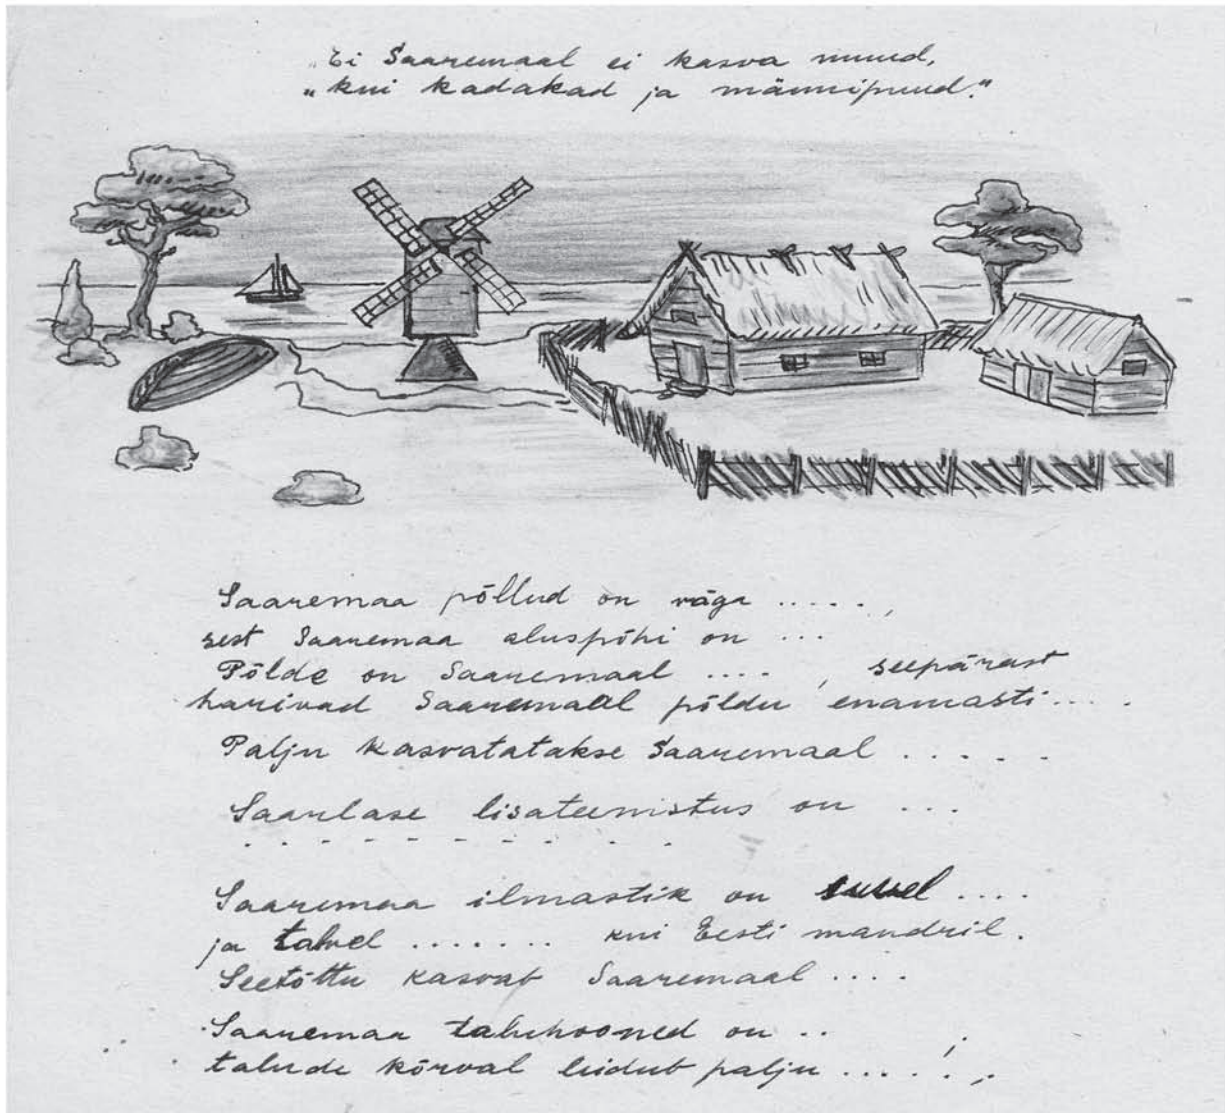 „Ei Saaremaal ei kasva muud,
„kui kadakad ja männipuud."
Saaremaa põllud on väga .....,
sest Saaremaa aluspõhi on ...
Põlde on Saaremaal ...., seepärast
harivad Saaremaal põldu enamasti....
Palju kasvatatakse Saaremaal .....
Saarlase lisateenistus on ...
. . . . . . . . . . .
Saaremaa ilmastik on suvel ....
ja talvel ....... kui Eesti mandril.
Seetõttu kasvab Saaremaal ....
Saaremaa taluhooned on ..
talude kõrval leidub palju .....,